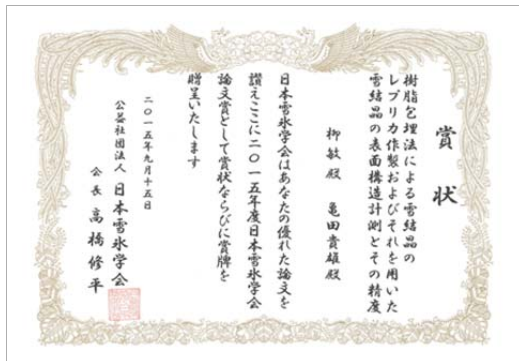 賞状
樹脂包埋法による雪結晶の
レプリカ作製およびそれを用いた
雪結晶の表面構造計測とその精度
柳敏殿 亀田貴雄殿
日本雪氷学会はあなたの優れた論文を
讃えここに二〇一五年度日本雪氷学会
論文賞として賞状ならびに賞牌を
贈呈いたします
二〇一五年九月十五日
公益社団法人 日本雪氷学会
会長 高橋修平